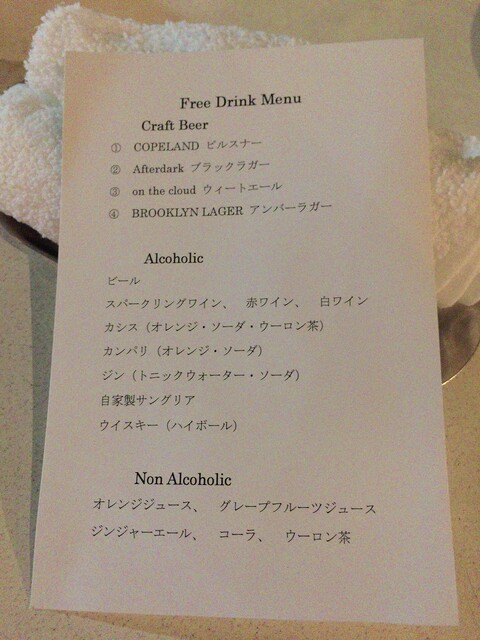 Free Drink Menu
Craft Beer
① COPELAND ピルスナー
② Afterdark ブラックラガー
③ on the cloud ウィートエール
④ BROOKLYN LAGER アンバーラガー
Alcoholic
ビール
スパークリングワイン、 赤ワイン、 白ワイン
カシス（オレンジ・ソーダ・ウーロン茶）
カンパリ（オレンジ・ソーダ）
ジン（トニックウォーター・ソーダ）
自家製サングリア
ウイスキー（ハイボール）
Non Alcoholic
オレンジジュース、 グレープフルーツジュース
ジンジャーエール、 コーラ、 ウーロン茶